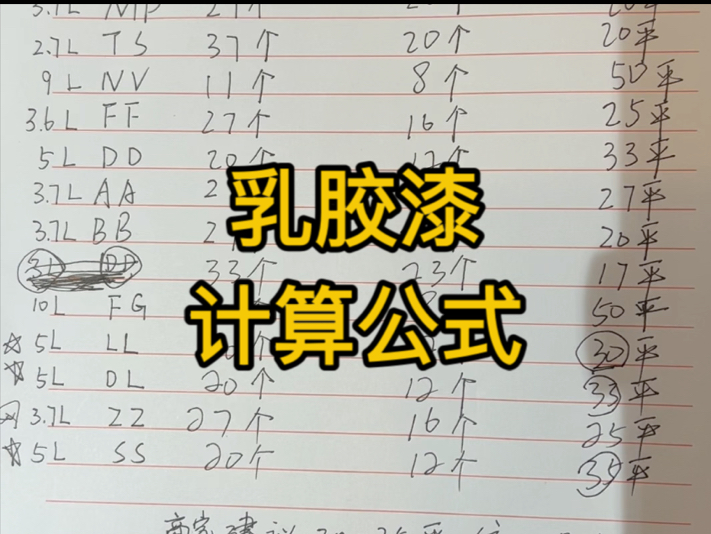 2.7L TS 37个 20个 20平
9L NV 11个 8个 50平
3.6L FF 27个 16个 25平
5L DD 20个 12个 33平
3.7L AA 27平
3.7L BB 20平
乳胶漆
33个 23个 17平
10L FG 50平
计算公式
☆ 5L LL 30平
☆ 5L DL 20个 12个 33平
3.7L ZZ 27个 16个 25平
☆ 5L SS 20个 12个 35平
商家建议